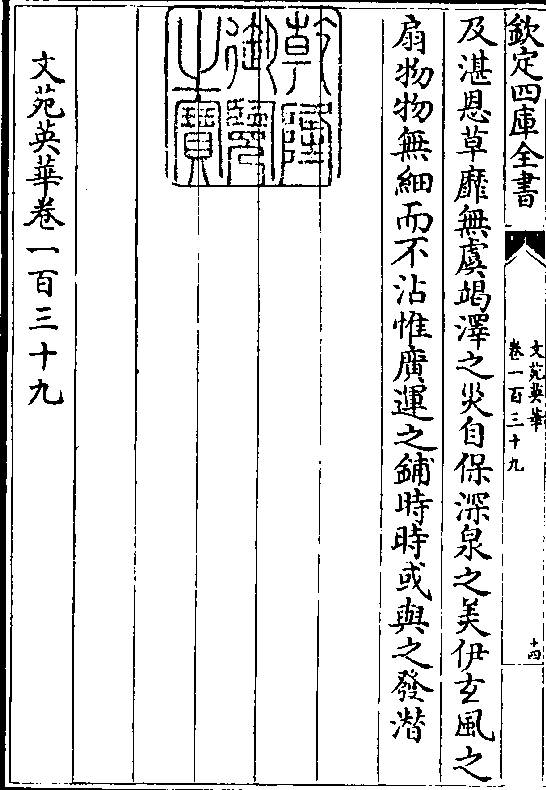 欽定四庫全書
文苑英華
卷一百三十九
十四
及湛恩草靡無虞竭澤之災自保深泉之美伊玄風之
扇物物無細而不沾惟廣運之鋪時時或與之發潛
乾隆御覽之寶
文苑英華卷一百三十九